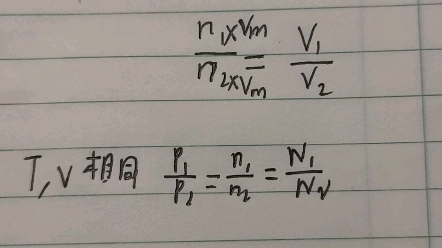 n₁×Vm/n₂×Vm = V₁/V₂
T,V相同 P₁/P₂ = n₁/n₂ = N₁/N₂